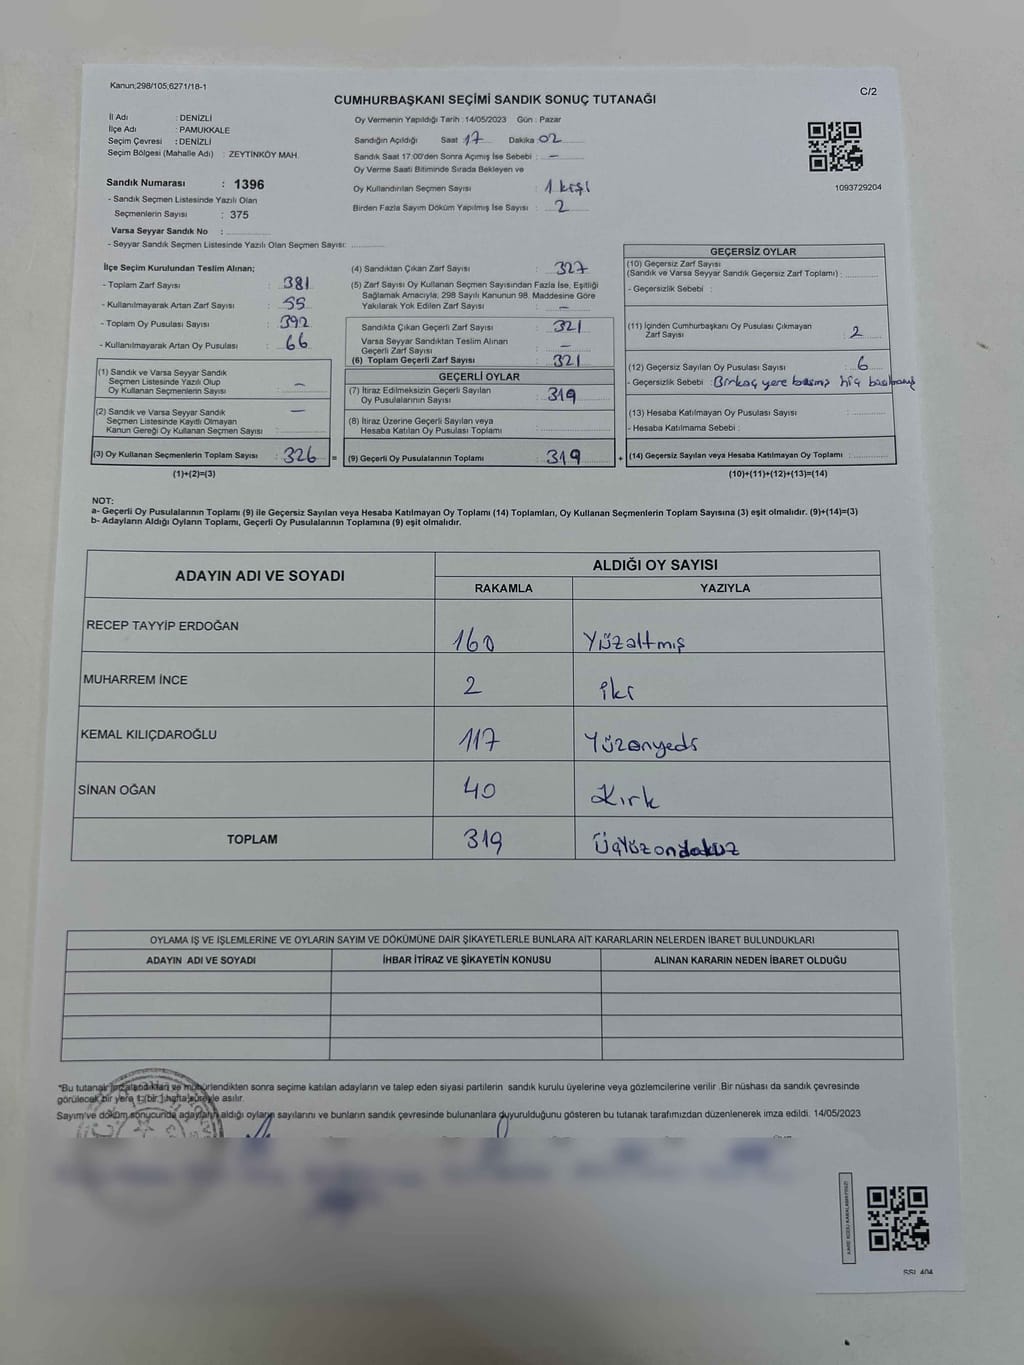 Kanun;298/105;6271/18-1
C/2
CUMHURBAŞKANI SEÇİMİ SANDIK SONUÇ TUTANAĞI
İl Adı : DENİZLİ
İlçe Adı : PAMUKKALE
Seçim Çevresi : DENİZLİ
Seçim Bölgesi (Mahalle Adı) : ZEYTİNKÖY MAH.
Sandık Numarası : 1396
- Sandık Seçmen Listesinde Yazılı Olan
Seçmenlerin Sayısı : 375
Varsa Seyyar Sandık No :
- Seyyar Sandık Seçmen Listesinde Yazılı Olan Seçmen Sayısı:
Oy Vermenin Yapıldığı Tarih : 14/05/2023 Gün : Pazar
Sandığın Açıldığı Saat 17 Dakika 02
Sandık Saat 17:00'den Sonra Açımış İse Sebebi : —
Oy Verme Saati Bitiminde Sırada Bekleyen ve
Oy Kullandırılan Seçmen Sayısı : 1 kişi
Birden Fazla Sayım Döküm Yapılmış İse Sayısı : 2
1093729204
İlçe Seçim Kurulundan Teslim Alınan;
- Toplam Zarf Sayısı : 381
- Kullanılmayarak Artan Zarf Sayısı : 55
- Toplam Oy Pusulası Sayısı : 392
- Kullanılmayarak Artan Oy Pusulası : 66
(1) Sandık ve Varsa Seyyar Sandık
Seçmen Listesinde Yazılı Olup
Oy Kullanan Seçmenlerin Sayısı : —
(2) Sandık ve Varsa Seyyar Sandık
Seçmen Listesinde Kayıtlı Olmayan
Kanun Gereği Oy Kullanan Seçmen Sayısı : —
(3) Oy Kullanan Seçmenlerin Toplam Sayısı : 326 =
(1)+(2)=(3)
(4) Sandıktan Çıkan Zarf Sayısı : 327
(5) Zarf Sayısı Oy Kullanan Seçmen Sayısından Fazla İse, Eşitliği
Sağlamak Amacıyla; 298 Sayılı Kanunun 98. Maddesine Göre
Yakılarak Yok Edilen Zarf Sayısı : —
Sandıkta Çıkan Geçerli Zarf Sayısı : 321
Varsa Seyyar Sandıktan Teslim Alınan
Geçerli Zarf Sayısı : —
(6) Toplam Geçerli Zarf Sayısı : 321
GEÇERLİ OYLAR
(7) İtiraz Edilmeksizin Geçerli Sayılan
Oy Pusulalarının Sayısı : 319
(8) İtiraz Üzerine Geçerli Sayılan veya
Hesaba Katılan Oy Pusulası Toplamı :
(9) Geçerli Oy Pusulalarının Toplamı : 319 +
GEÇERSİZ OYLAR
(10) Geçersiz Zarf Sayısı
(Sandık ve Varsa Seyyar Sandık Geçersiz Zarf Toplamı) :
- Geçersizlik Sebebi :
(11) İçinden Cumhurbaşkanı Oy Pusulası Çıkmayan
Zarf Sayısı : 2
(12) Geçersiz Sayılan Oy Pusulası Sayısı : 6
- Geçersizlik Sebebi : Birkaç yere hiç
(13) Hesaba Katılmayan Oy Pusulası Sayısı :
- Hesaba Katılmama Sebebi :
(14) Geçersiz Sayılan veya Hesaba Katılmayan Oy Toplamı :
(10)+(11)+(12)+(13)=(14)
NOT:
a- Geçerli Oy Pusulalarının Toplamı (9) ile Geçersiz Sayılan veya Hesaba Katılmayan Oy Toplamı (14) Toplamları, Oy Kullanan Seçmenlerin Toplam Sayısına (3) eşit olmalıdır. (9)+(14)=(3)
b- Adayların Aldığı Oyların Toplamı, Geçerli Oy Pusulalarının Toplamına (9) eşit olmalıdır.
ADAYIN ADI VE SOYADI
ALDIĞI OY SAYISI
RAKAMLA YAZIYLA
RECEP TAYYİP ERDOĞAN 160 Yüzaltmış
MUHARREM İNCE 2 iki
KEMAL KILIÇDAROĞLU 117 Yüzonyedi
SİNAN OĞAN 40 Kırk
TOPLAM 319 Üçyüzondokuz
OYLAMA İŞ VE İŞLEMLERİNE VE OYLARIN SAYIM VE DÖKÜMÜNE DAİR ŞİKAYETLERLE BUNLARA AİT KARARLARIN NELERDEN İBARET BULUNDUKLARI
ADAYIN ADI VE SOYADI İHBAR İTİRAZ VE ŞİKAYETİN KONUSU ALINAN KARARIN NEDEN İBARET OLDUĞU
*Bu tutanak imzalandıktan ve mühürlendikten sonra seçime katılan adayların ve talep eden siyasi partilerin sandık kurulu üyelerine veya gözlemcilerine verilir .Bir nüshası da sandık çevresinde
görülecek bir yere 1 (bir ) hafta süreyle asılır.
Sayım ve döküm sonucunda adayların aldığı oyların sayılarını ve bunların sandık çevresinde bulunanlara duyurulduğunu gösteren bu tutanak tarafımızdan düzenlenerek imza edildi. 14/05/2023
SSI_404